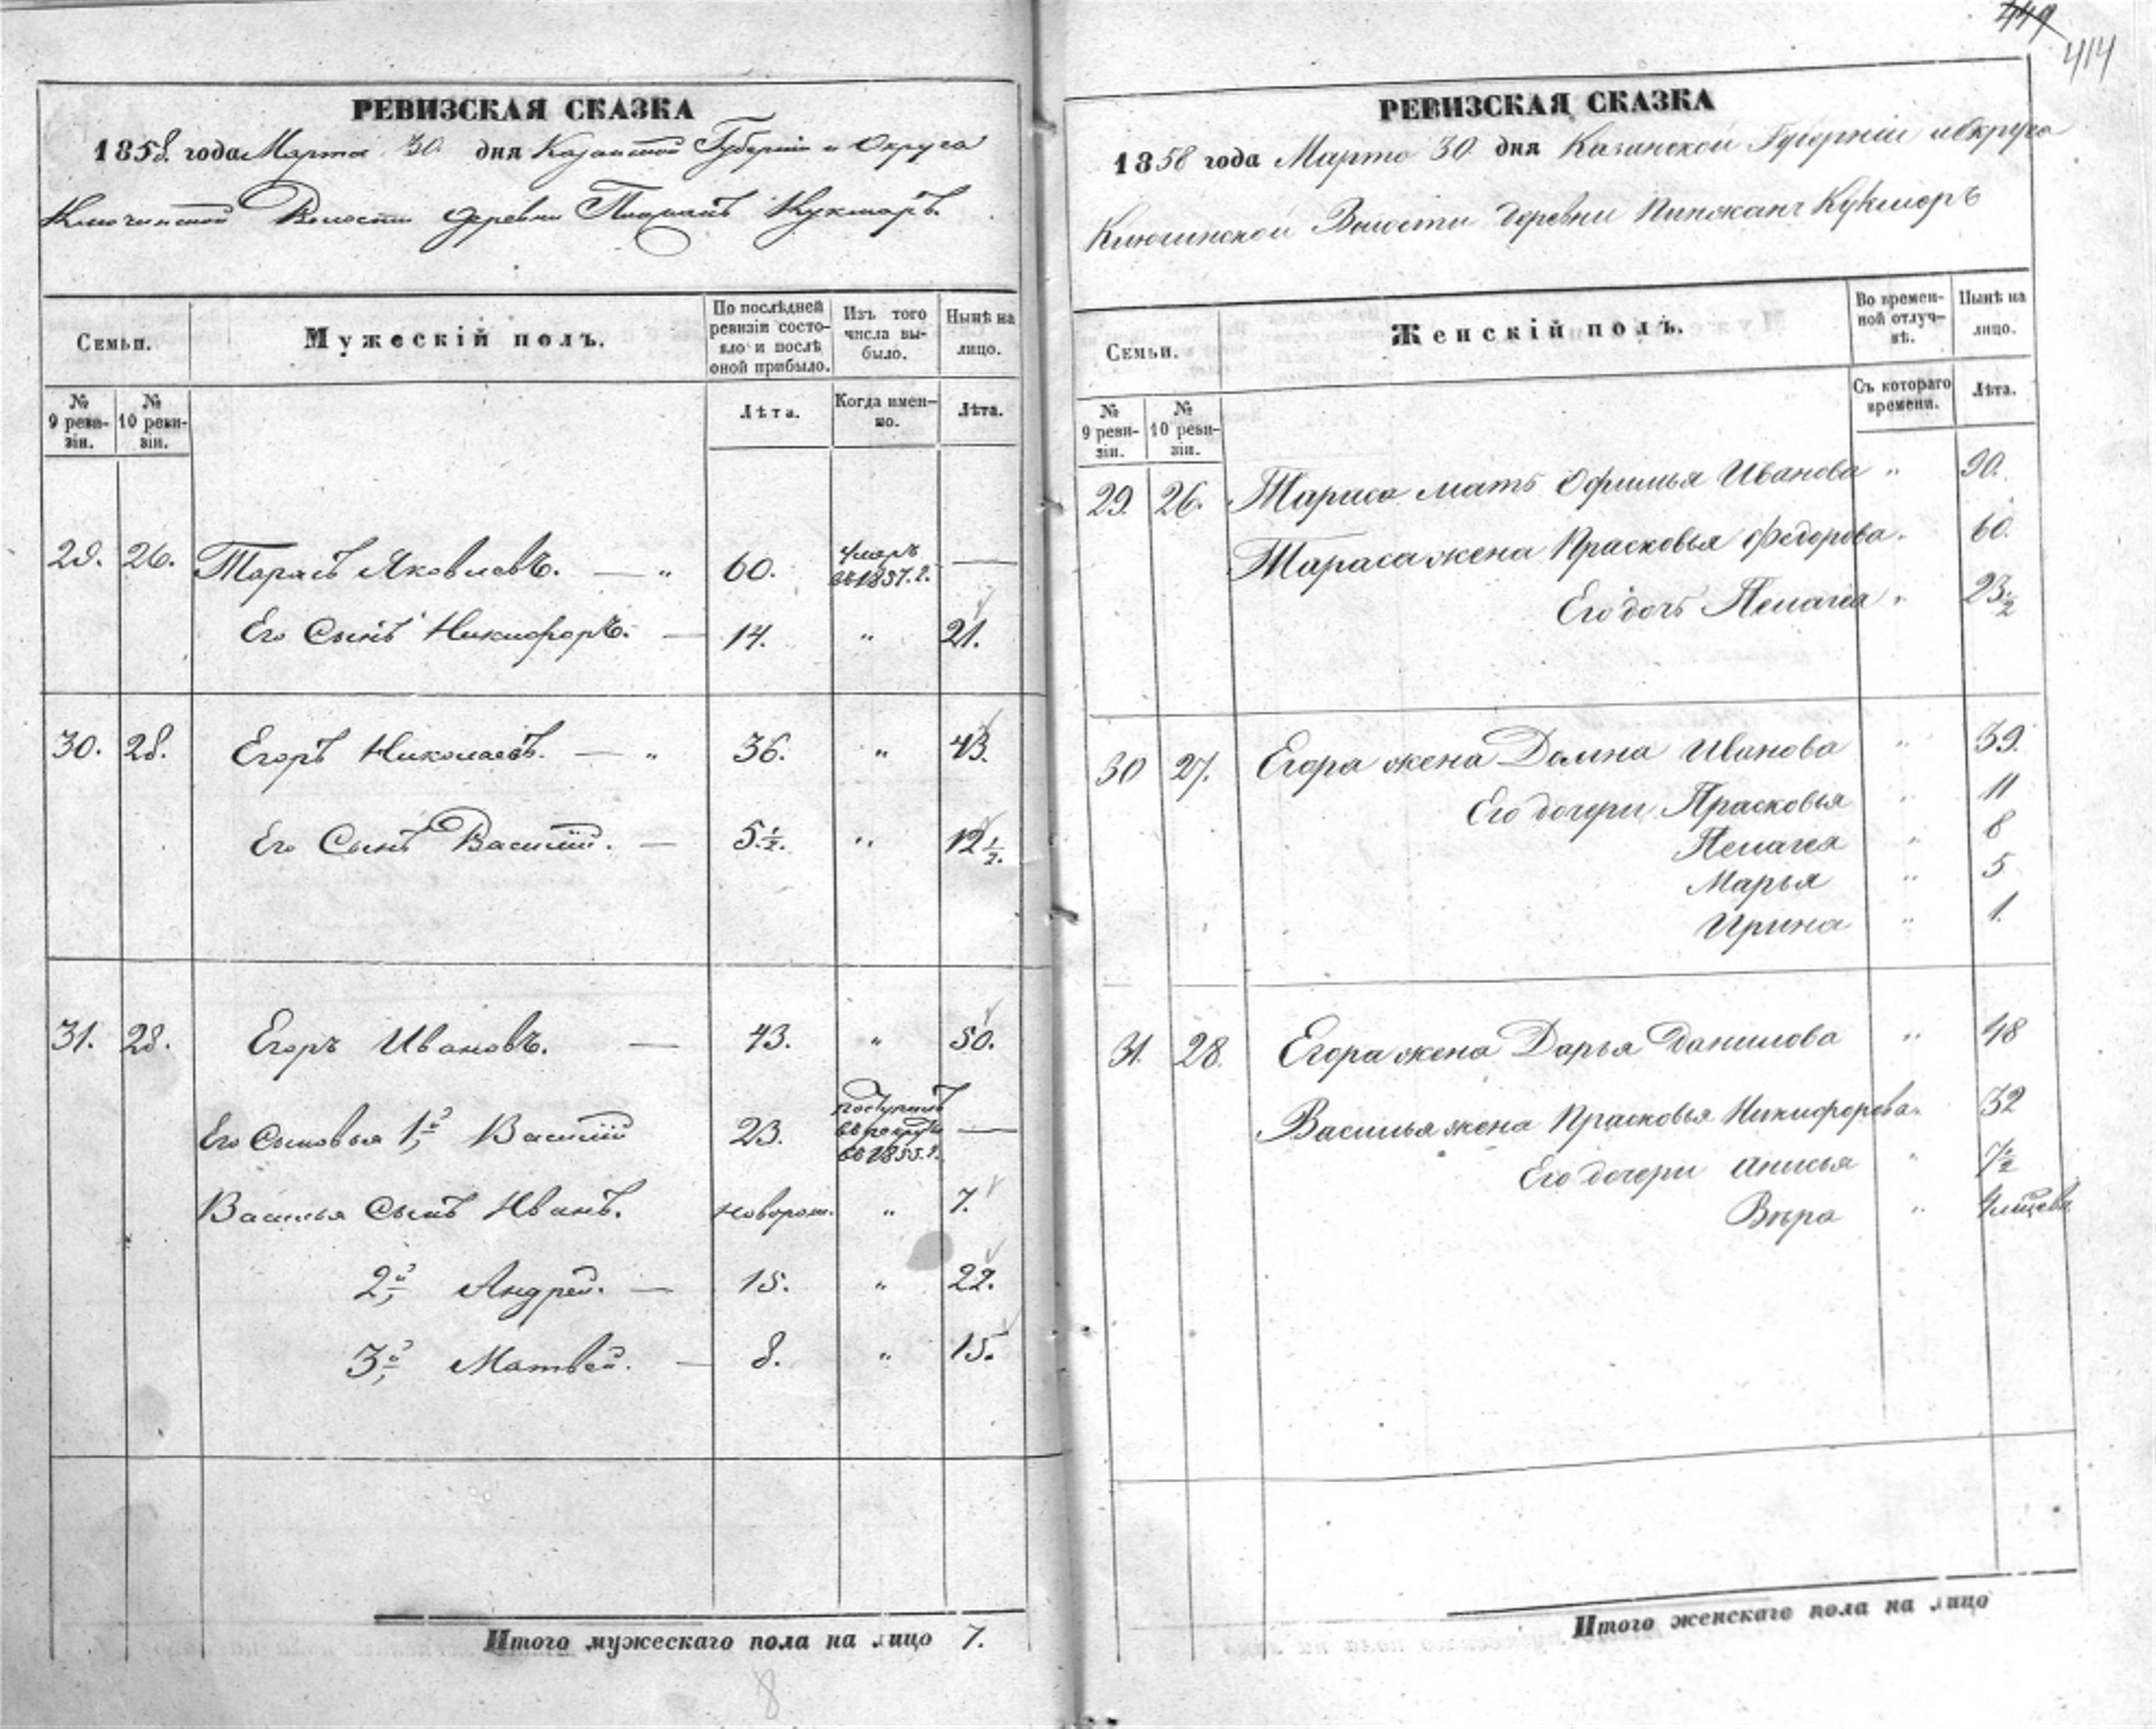 449
414
РЕВИЗСКАЯ СКАЗКА
1858 года Марта 30 дня Казанской Губернии и Округа
Ключинской Волости деревни Кукморъ.
Семьи.
Мужескій полъ.
По послѣдней ревизіи состояло и послѣ оной прибыло.
Изъ того числа выбыло.
Нынѣ на лицо.
№ 9 ревизіи.
№ 10 ревизіи.
Лѣта.
Когда именно.
Лѣта.
29. 26. Тарасъ Яковлевъ. — „ 60. умеръ въ 1857. г. —
Его Сынъ Никифоръ. — 14. „ 21.
30. 28. Егоръ Николаевъ. — „ 36. „ 43.
Его Сынъ Василій. — 5 1/2. „ 12 1/2.
31. 28. Егоръ Ивановъ. — 43. „ 50.
Его Сыновья 1й Василій 23. поступилъ въ рекруты въ 1855. г. —
Василья Сынъ Иванъ. новорож. „ 7.
2й Андрей. — 15. „ 22.
3й Матвей. — 8. „ 15.
Итого мужескаго пола на лицо 7.
8
РЕВИЗСКАЯ СКАЗКА
1858 года Марта 30 дня Казанской Губерніи и Округа
Ключинской Волости деревни Кукморъ
Семьи.
Женскій полъ.
Во временной отлучкѣ.
Нынѣ на лицо.
№ 9 ревизіи.
№ 10 ревизіи.
Съ котораго времени.
Лѣта.
29. 26. Тараса мать Офимья Иванова „ 90.
Тараса жена Прасковья Федорова. „ 60.
Его дочь Пелагея „ 23 1/2
30 27. Егора жена Домна Иванова „ 39.
Его дочери Прасковья „ 11
Пелагея „ 8
Марья „ 5
Ирина „ 1.
31. 28. Егора жена Дарья Данилова „ 48
Василья жена Прасковья Никифорова. 32
Его дочери Анисья „ 7 1/2
Вѣра „
Итого женскаго пола на лицо